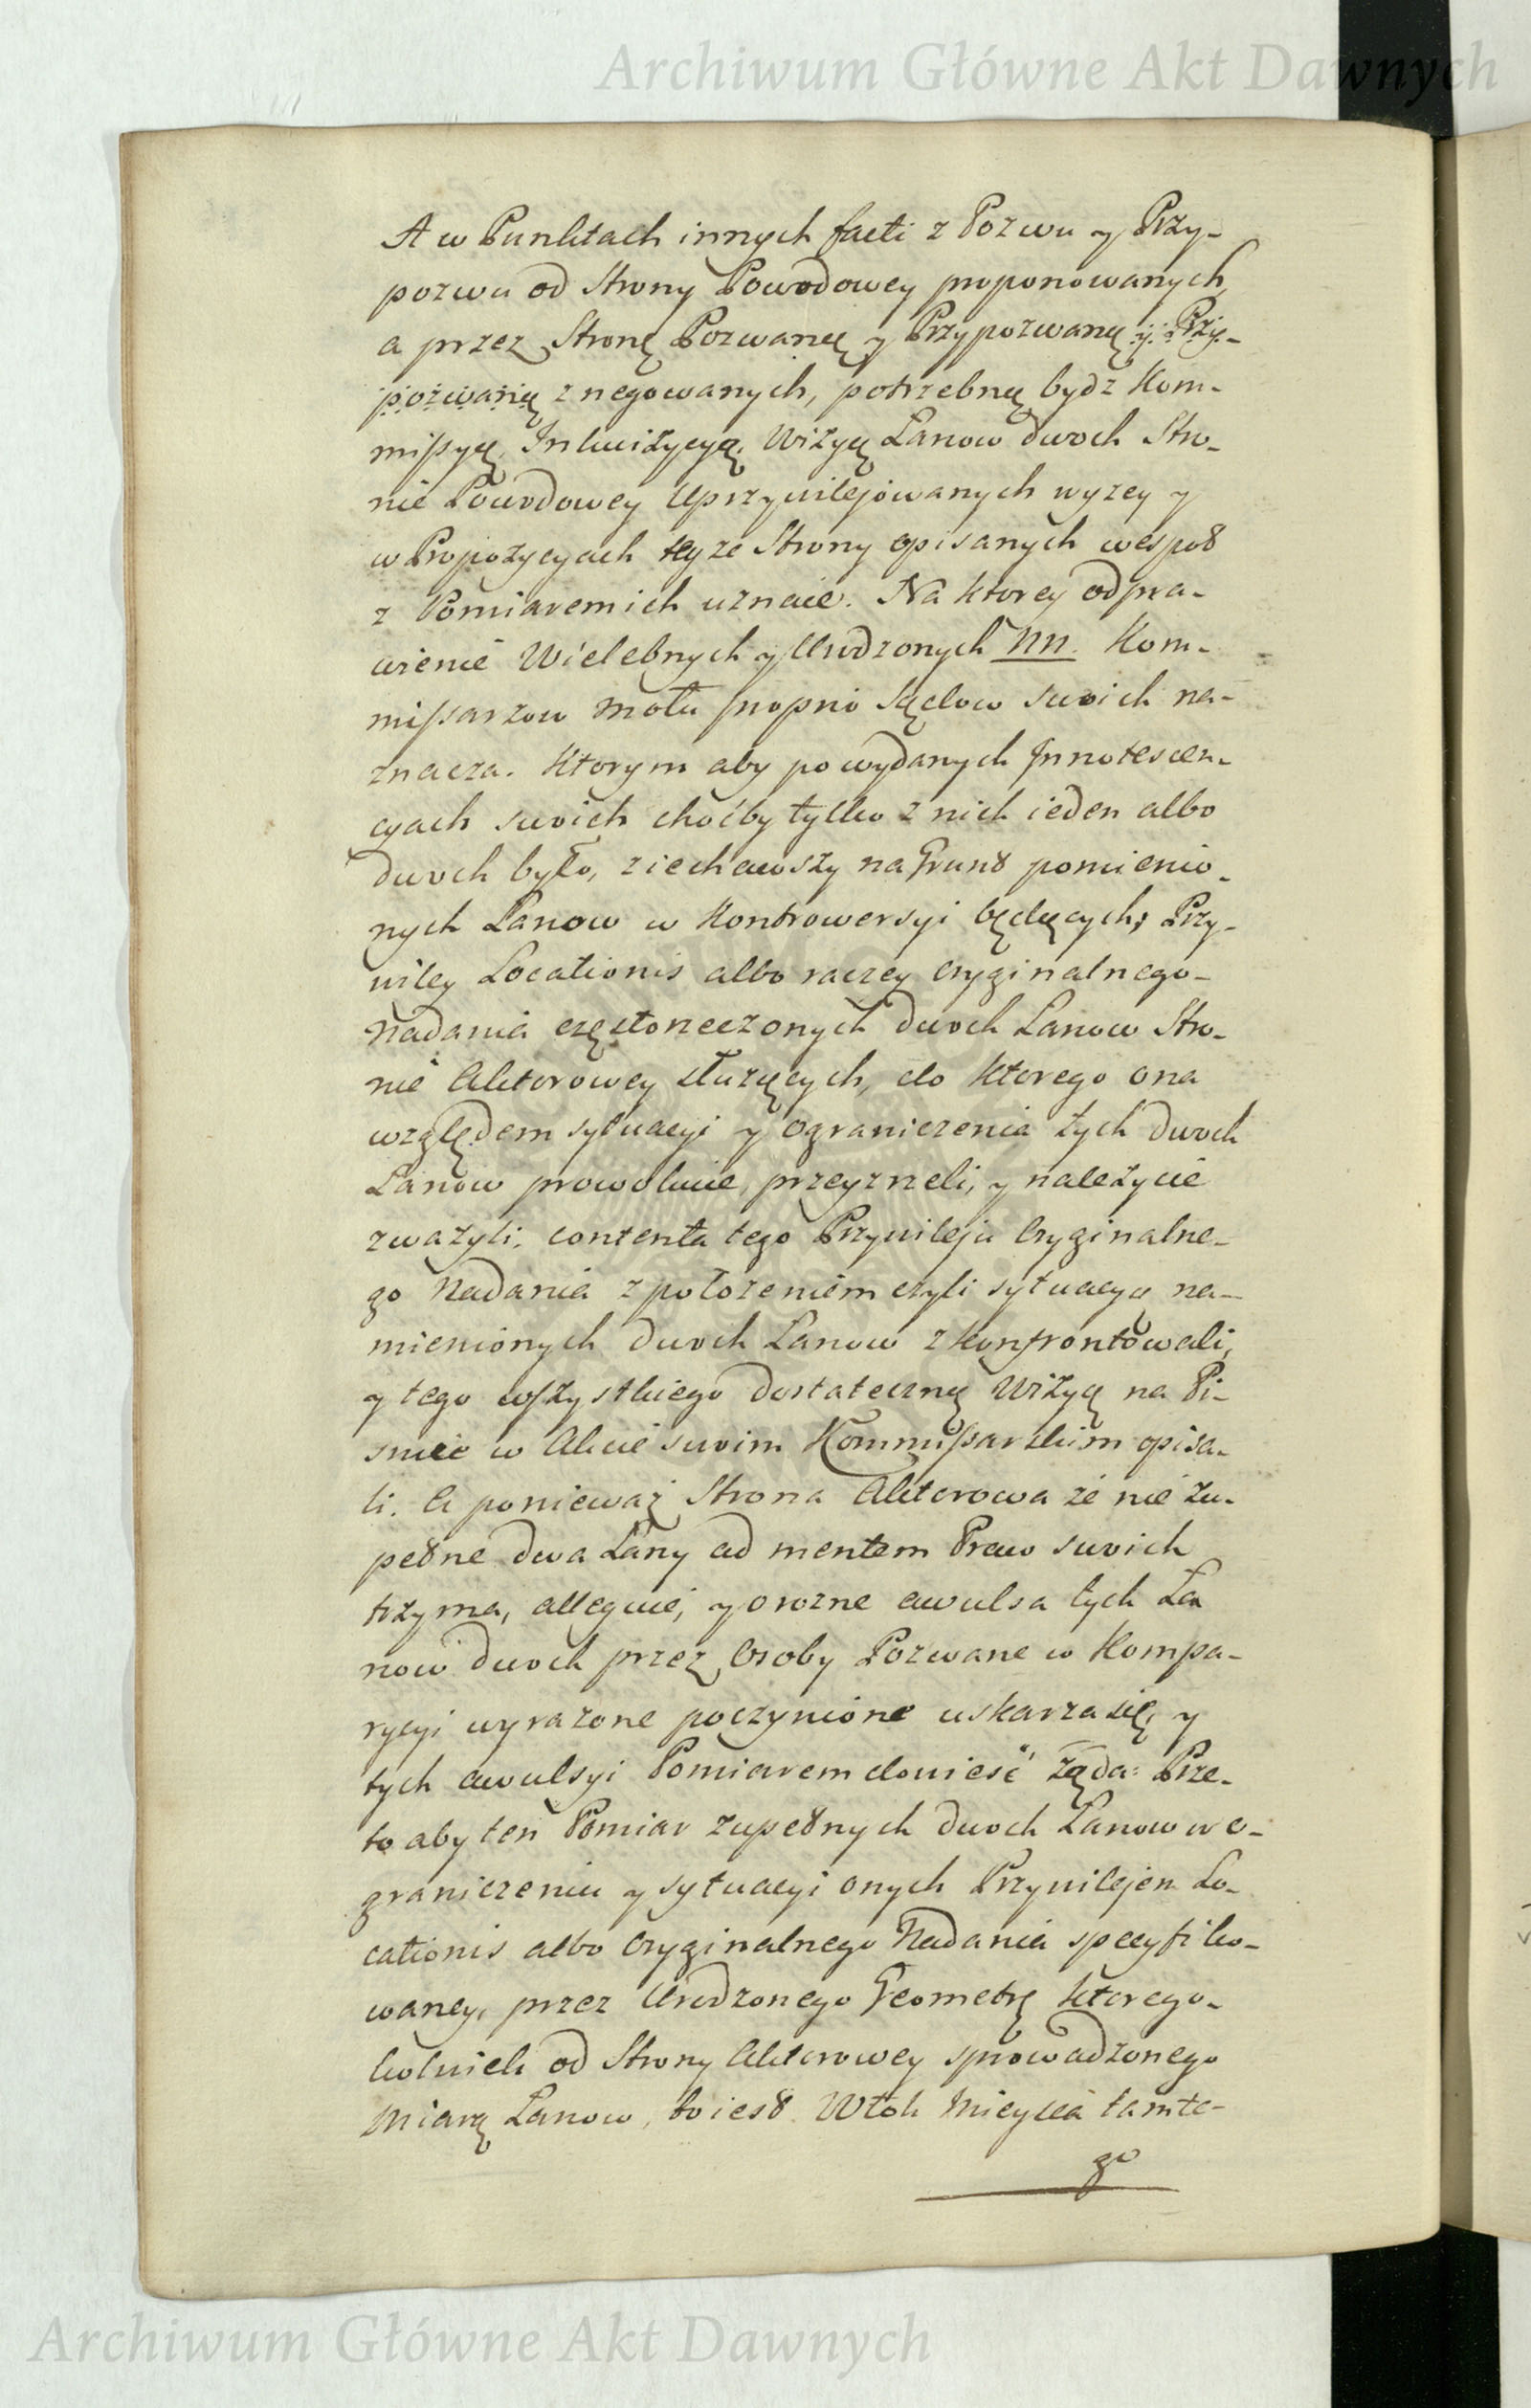 Archiwum Główne Akt Dawnych
A w Punktach innych facti z Pozwu y Przy-
pozwu od Strony Powodowey proponowanych,
a przez Stronę Pozwaną y Przypozwaną y Przy-
pozwaną znegowanych, potrzebną bydz Kom-
missyą, Inkwizycyą, Wizyą Łanow dwoch Stro-
nie Powodowey uprzywilejowanych wyzey y
w Propozycyach teyze Strony opisanych wespoł
z Pomiarem ich uznaie. Na ktorey odpra-
wienie Wielebnych y Urodzonych NN. Kom-
missarzow motu proprio Sądow swoich na-
znacza. Ktorym aby po wydanych Innotescen-
cyach swoich choćby tylko z nich ieden albo
dwoch było, ziechawszy na Grunt pomienio-
nych Łanow w Kontrowersyi będących, Przy-
wiley Locationis albo raczey Oryginalnego
Nadania częstorzeczonych dwoch Łanow Stro-
nie Aktorowey służących, do ktorego ona
względem sytuacyi y ograniczenia tych dwoch
Łanow prowokuie, przeyrzeli, y należycie
zważyli, contenta tego Przywileju Oryginalne-
go Nadania z położeniem czyli sytuacyą na-
mienionych dwoch Łanow zkonfrontowali,
y tego wszystkiego dostateczną Wizyą na Pi-
smie w Akcie swoim Kommissarskim opisa-
li. A ponieważ Strona Aktorowa że nie zu-
pełne dwa Łany ad mentem Praw swoich
trzyma, alleguie, y o rozne awulsa tych Ła
now dwoch przez Osoby Pozwane w Kompa-
rycyi wyrazone poczynione uskarza się, y
tych awulsyi Pomiarem dowieść żąda: Prze-
to aby ten Pomiar zupełnych dwoch Łanow w o-
graniczeniu y sytuacyi onych Przywilejem Lo-
cationis albo Oryginalnego Nadania specyfiko-
waney, przez Urodzonego Geometrę ktorego-
kolwiek od Strony Aktorowey sprowadzonego
Miarą Łanow, to iest Włok Mieysca tamte-
go
Archiwum Główne Akt Dawnych